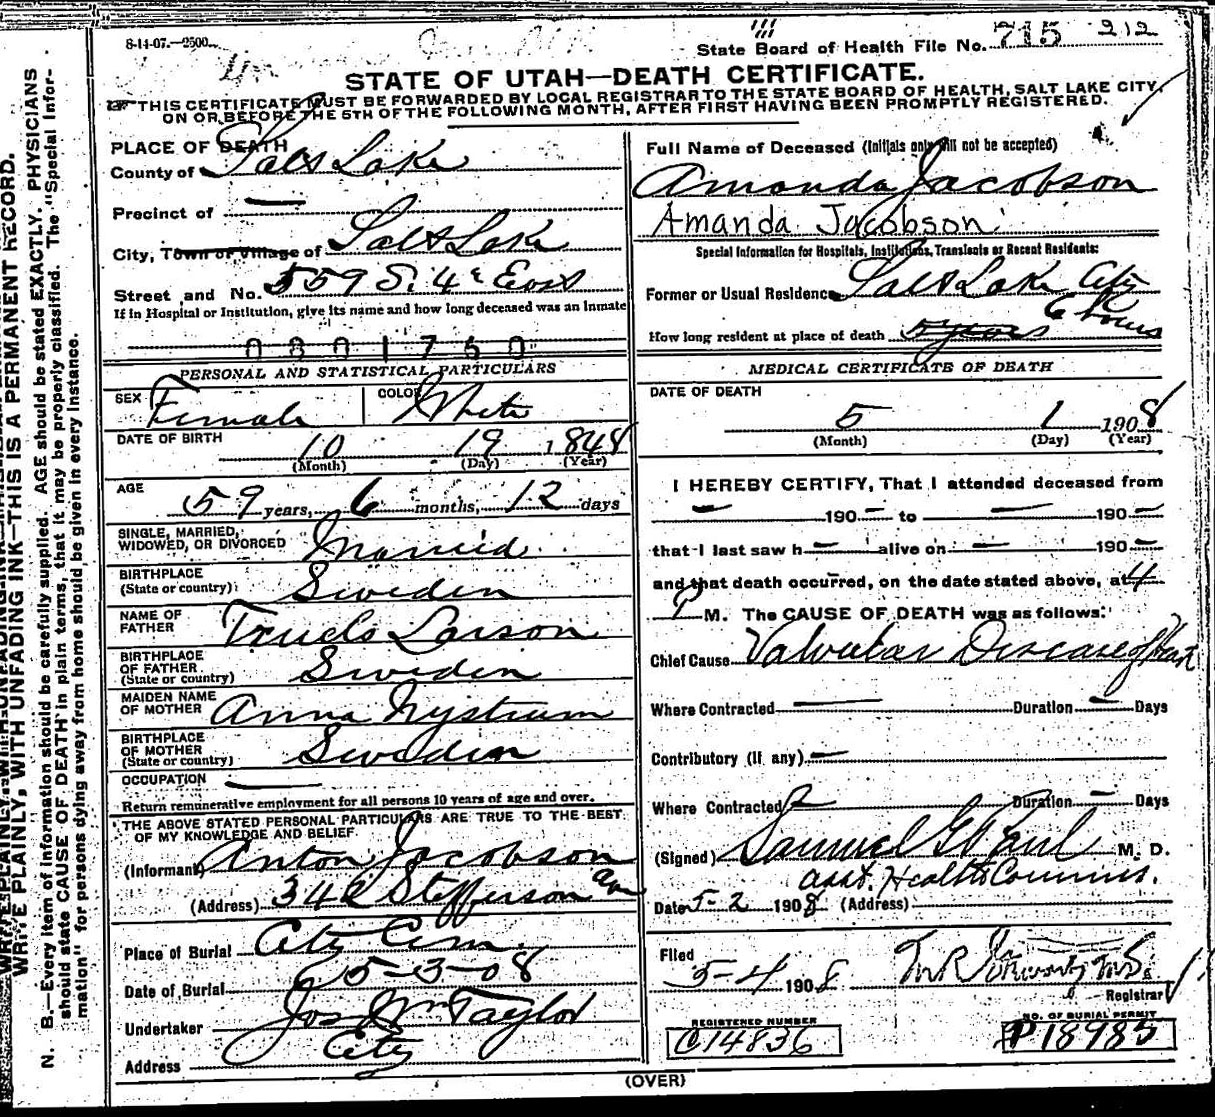 8-14-07.—2500.
State Board of Health File No. 715 212
STATE OF UTAH—DEATH CERTIFICATE.
☞ THIS CERTIFICATE MUST BE FORWARDED BY LOCAL REGISTRAR TO THE STATE BOARD OF HEALTH, SALT LAKE CITY,
ON OR BEFORE THE 5TH OF THE FOLLOWING MONTH, AFTER FIRST HAVING BEEN PROMPTLY REGISTERED.
PLACE OF DEATH
County of Salt Lake
Precinct of —
City, Town or Village of Salt Lake
Street and No. 559 S. 4th East
If in Hospital or Institution, give its name and how long deceased was an inmate
0801760
PERSONAL AND STATISTICAL PARTICULARS
SEX Female COLOR White
DATE OF BIRTH 10 19 1848
(Month) (Day) (Year)
AGE 59 years, 6 months, 12 days
SINGLE, MARRIED,
WIDOWED, OR DIVORCED Married
BIRTHPLACE
(State or country) Sweden
NAME OF
FATHER Truels Larson
BIRTHPLACE
OF FATHER
(State or country) Sweden
MAIDEN NAME
OF MOTHER Anna Nystrum
BIRTHPLACE
OF MOTHER
(State or country) Sweden
OCCUPATION —
Return remunerative employment for all persons 10 years of age and over.
THE ABOVE STATED PERSONAL PARTICULARS ARE TRUE TO THE BEST
OF MY KNOWLEDGE AND BELIEF
(Informant) Anton Jacobson
(Address) 342 Stefferson Ave
Place of Burial City Cem.
Date of Burial 5-3-08
Undertaker Jos Wm Taylor
Address City
Full Name of Deceased (Initials only will not be accepted)
Amanda Jacobson
Amanda Jacobson
Special Information for Hospitals, Institutions, Transients or Recent Residents:
Former or Usual Residence Salt Lake City
How long resident at place of death 5 years 6 hours
MEDICAL CERTIFICATE OF DEATH
DATE OF DEATH
5 1 1908
(Month) (Day) (Year)
I HEREBY CERTIFY, That I attended deceased from
— 190— to — 190—
that I last saw h— alive on — 190—
and that death occurred, on the date stated above, at 4
P M. The CAUSE OF DEATH was as follows:
Chief Cause Valvular Disease of Heart
Where Contracted — Duration — Days
Contributory (if any) —
Where Contracted Duration — Days
(Signed) Samuel G Paul M. D.
asst. Health Commis.
Date 5-2 1908 (Address)
Filed
5-4 1908
Registrar
REGISTERED NUMBER
C14836
NO. OF BURIAL PERMIT
P18985
(OVER)
WRITE PLAINLY, WITH UNFADING INK—THIS IS A PERMANENT RECORD.
N. B.—Every item of information should be carefully supplied. AGE should be stated EXACTLY. PHYSICIANS
should state CAUSE OF DEATH in plain terms, that it may be properly classified. The "Special Infor-
mation" for persons dying away from home should be given in every instance.